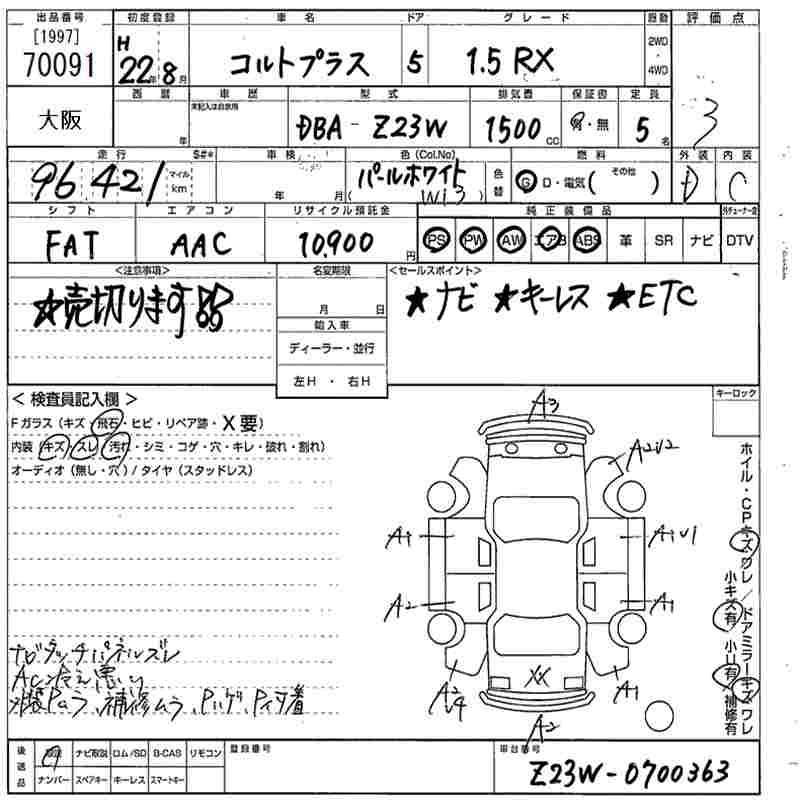 出品番号 初度登録 車名 ドア グレード 駆動 評価点
[1997] 70091 H 22年 8月 コルトプラス 5 1.5 RX 2WD・4WD 3
大阪 西暦 年 車歴 未記入は自家用 型式 DBA-Z23W 排気量 1500cc 保証書 有・無 定員 5名
走行 96,421 マイル km S#* 車検 年 月 色(Col.No) パールホワイト (W13) 色替 燃料 G D・電気( その他 ) 外装 D 内装 C
シフト エアコン リサイクル預託金 純正装備品
FAT AAC 10,900円 PS PW AW エアB ABS 革 SR ナビ DTV
<注意事項> 名変期限 <セールスポイント>
★売切ります!! 月 日 ★ナビ ★キーレス ★ETC
輸入車
ディーラー・並行
左H・右H
<検査員記入欄> キーロック
Fガラス(キズ・飛石・ヒビ・リペア跡・X要)
内装(キズ・スレ・汚れ・シミ・コゲ・穴・キレ・破れ・割れ)
オーディオ(無し・穴)/タイヤ(スタッドレス)
A3
A2U2
A1 A1U1
A2 A1
XX
A1
A2
ホイル・CPキズワレ/ドアミラーキズワレ
小キズ有 小U有 補修有
ナビタッチパネルズレ
AC冷え悪い
後送品 ナビ取説 ロム/SD B-CAS リモコン 登録番号 車台番号
ナンバー スペアキー キーレス スマートキー Z23W-0700363